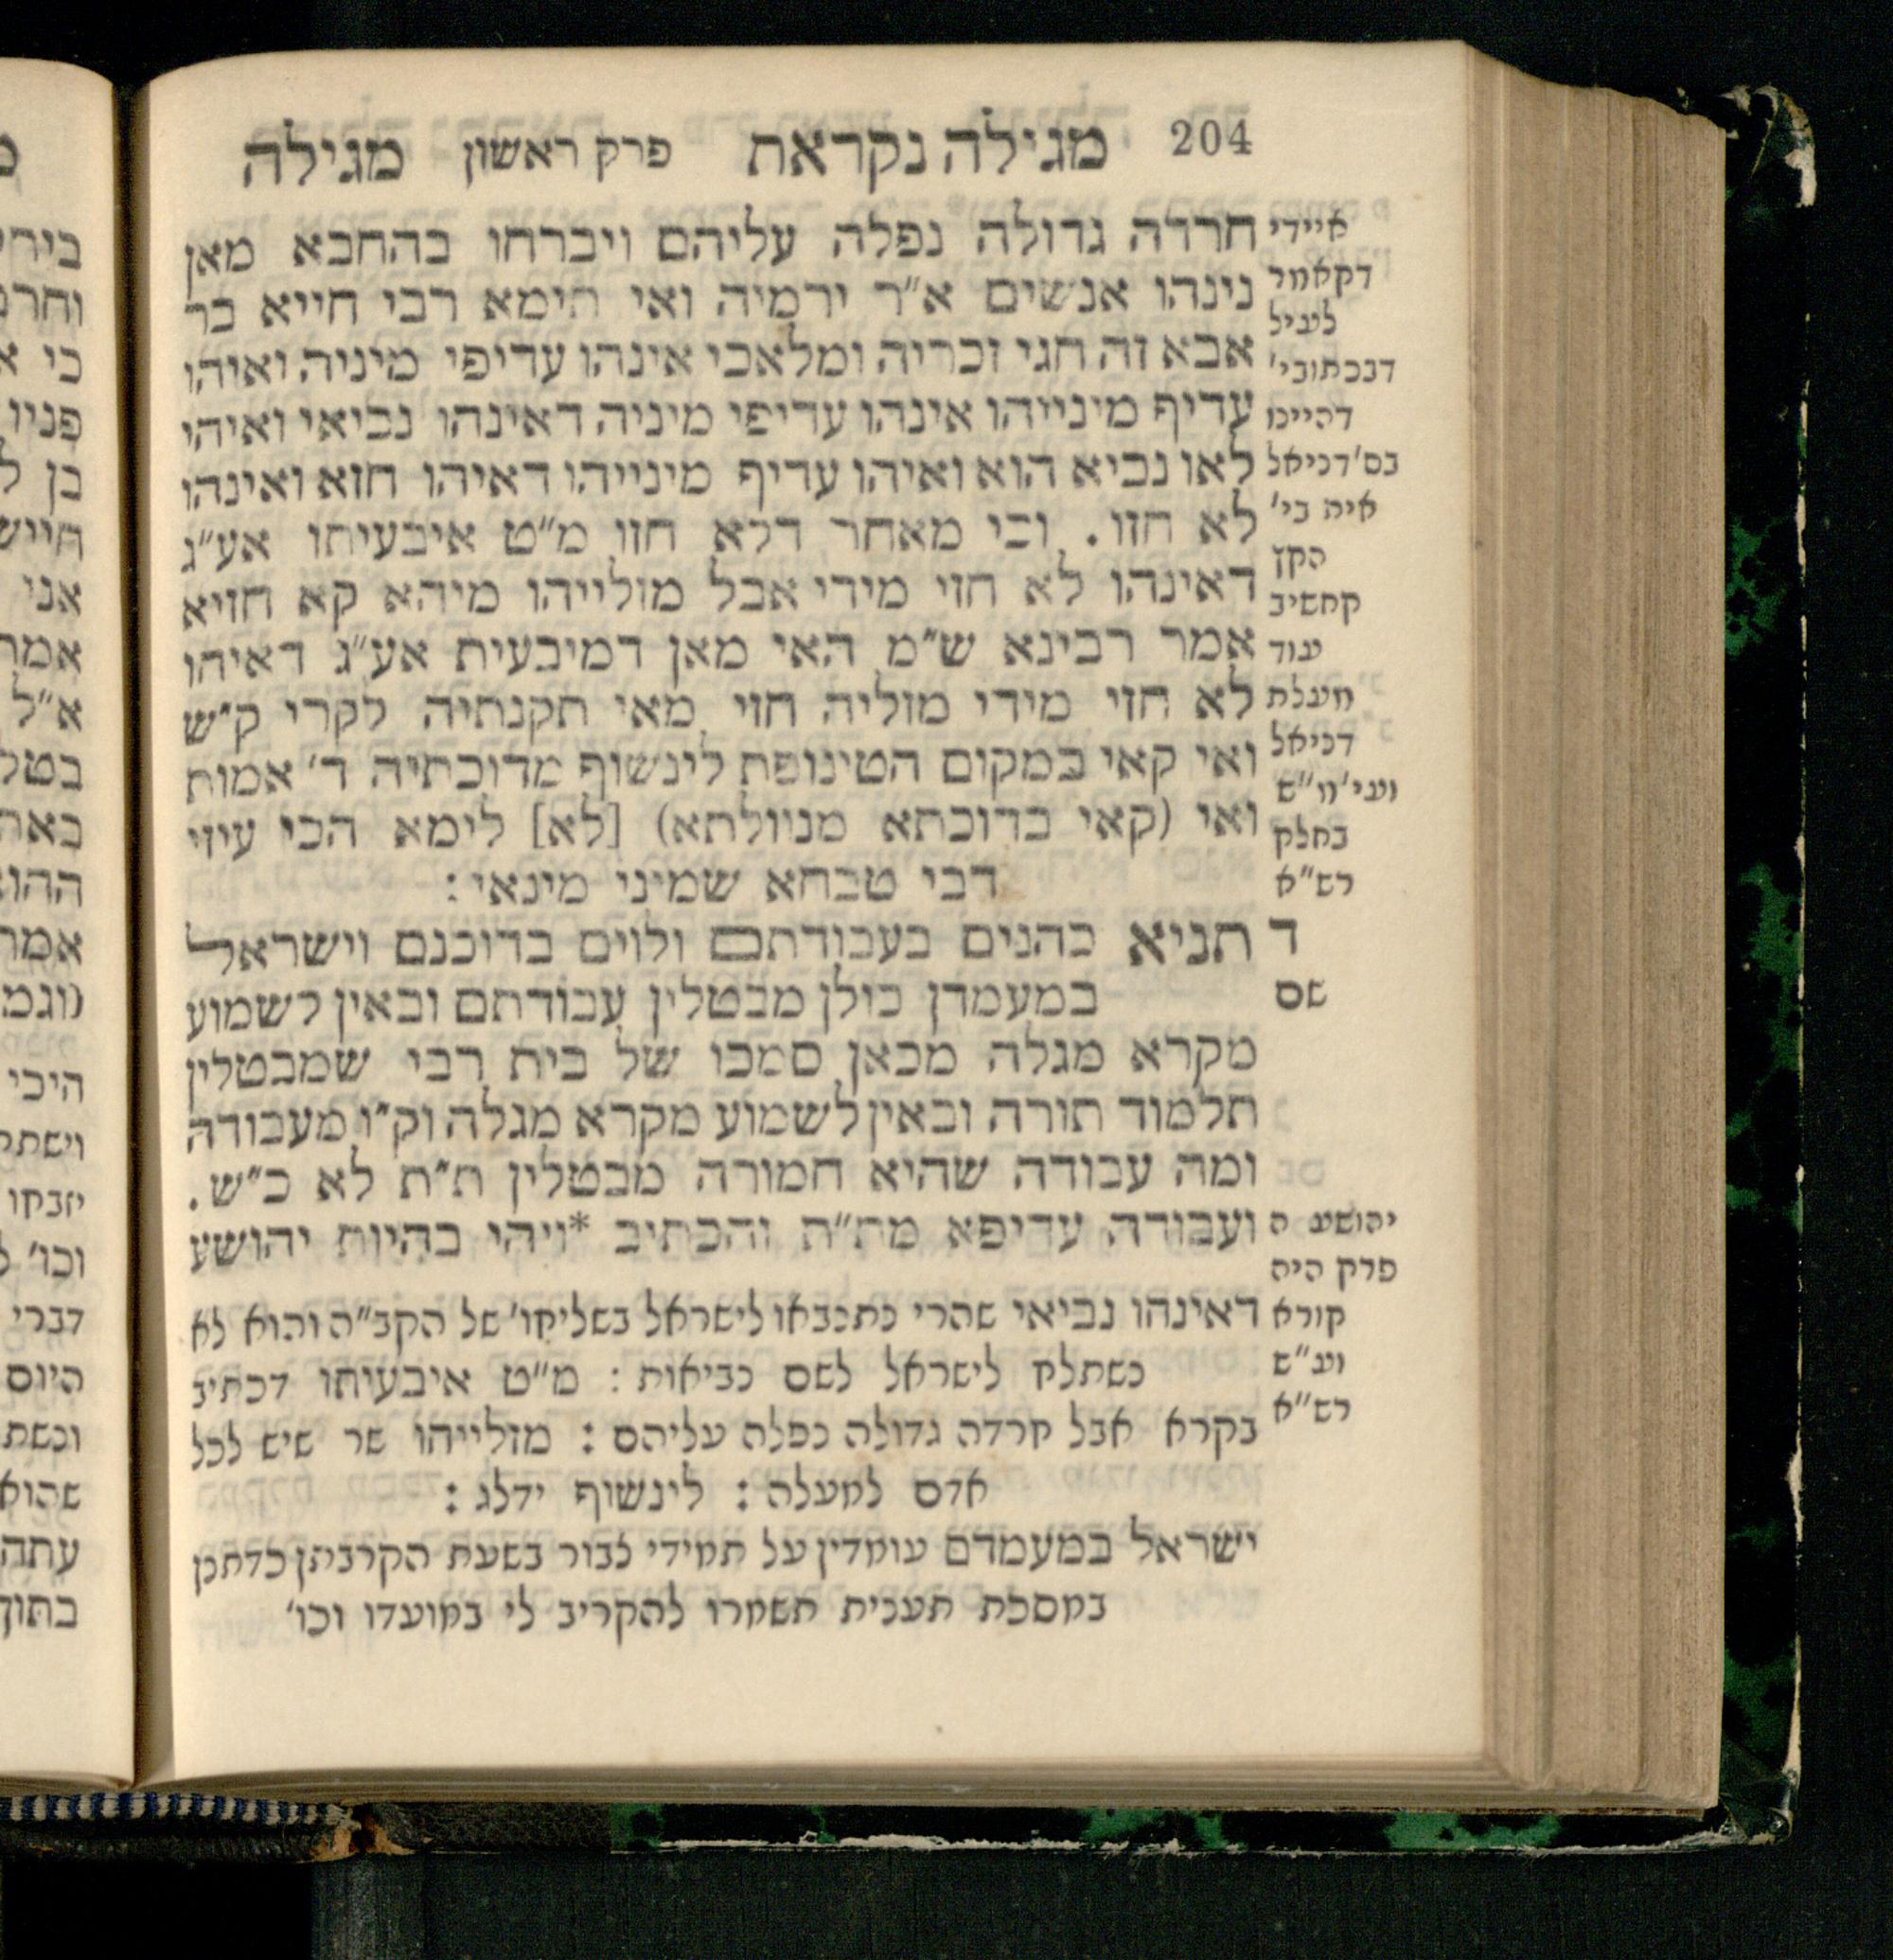 204 מגילה נקראת פרק ראשון מגילה
חרדה גדולה נפלה עליהם ויברחו בהחבא מאן
נינהו אנשים א״ר ירמיה ואי תימא רבי חייא בר
אבא זה חגי זכריה ומלאכי אינהו עדיפי מיניה ואיהו
עדיף מינייהו אינהו עדיפי מיניה דאינהו נביאי ואיהו
לאו נביא הוא ואיהו עדיף מינייהו דאיהו חזא ואינהו
לא חזו. וכי מאחר דלא חזו מ״ט איבעיתו אע״ג
דאינהו לא חזי מידי אבל מזלייהו מיהא קא חזיא
אמר רבינא ש״מ האי מאן דמיבעית אע״ג דאיהו
לא חזי מידי מזליה חזי מאי תקנתיה לקרי ק״ש
ואי קאי במקום הטינופת לינשוף מדוכתיה ד׳ אמות
ואי (קאי בדוכתא מנוולתא) [לא] לימא הכי עיזי
דבי טבחא שמיני מינאי:
תניא כהנים בעבודתם ולוים בדוכנם וישראל
במעמדן כולן מבטלין עבודתם ובאין לשמוע
מקרא מגלה מכאן סמכו של בית רבי שמבטלין
תלמוד תורה ובאין לשמוע מקרא מגלה וק״ו מעבודה
ומה עבודה שהיא חמורה מבטלין ת״ת לא כ״ש.
ועבודה עדיפא מת״ת והכתיב *ויהי בהיות יהושע
דאינהו נביאי שהרי נתנבאו לישראל בשליחו׳ של הקב״ה והוא לא
נשתלח לישראל לשם נביאות: מ״ט איבעיתו דכתיב
בקרא אבל חרדה גדולה נפלה עליהם: מזלייהו שר שיש לכל
אדם למעלה: לינשוף ידלג:
ישראל במעמדם עומדין על תמידי צבור בשעת הקרבתן כדתנן
במסכת תענית תשמרו להקריב לי במועדו וכו׳
איידי
דקאמר
לעיל
דבכתובי׳
דהיינו
בס׳ דניאל
איה בי׳
הקץ
קחשיב
עוד
מעלת
דניאל
ועי׳ מ״ש
בחלק
רש״א
ד
שם
יהושע ה
פרק היה
קורא
וע״ש
רש״א